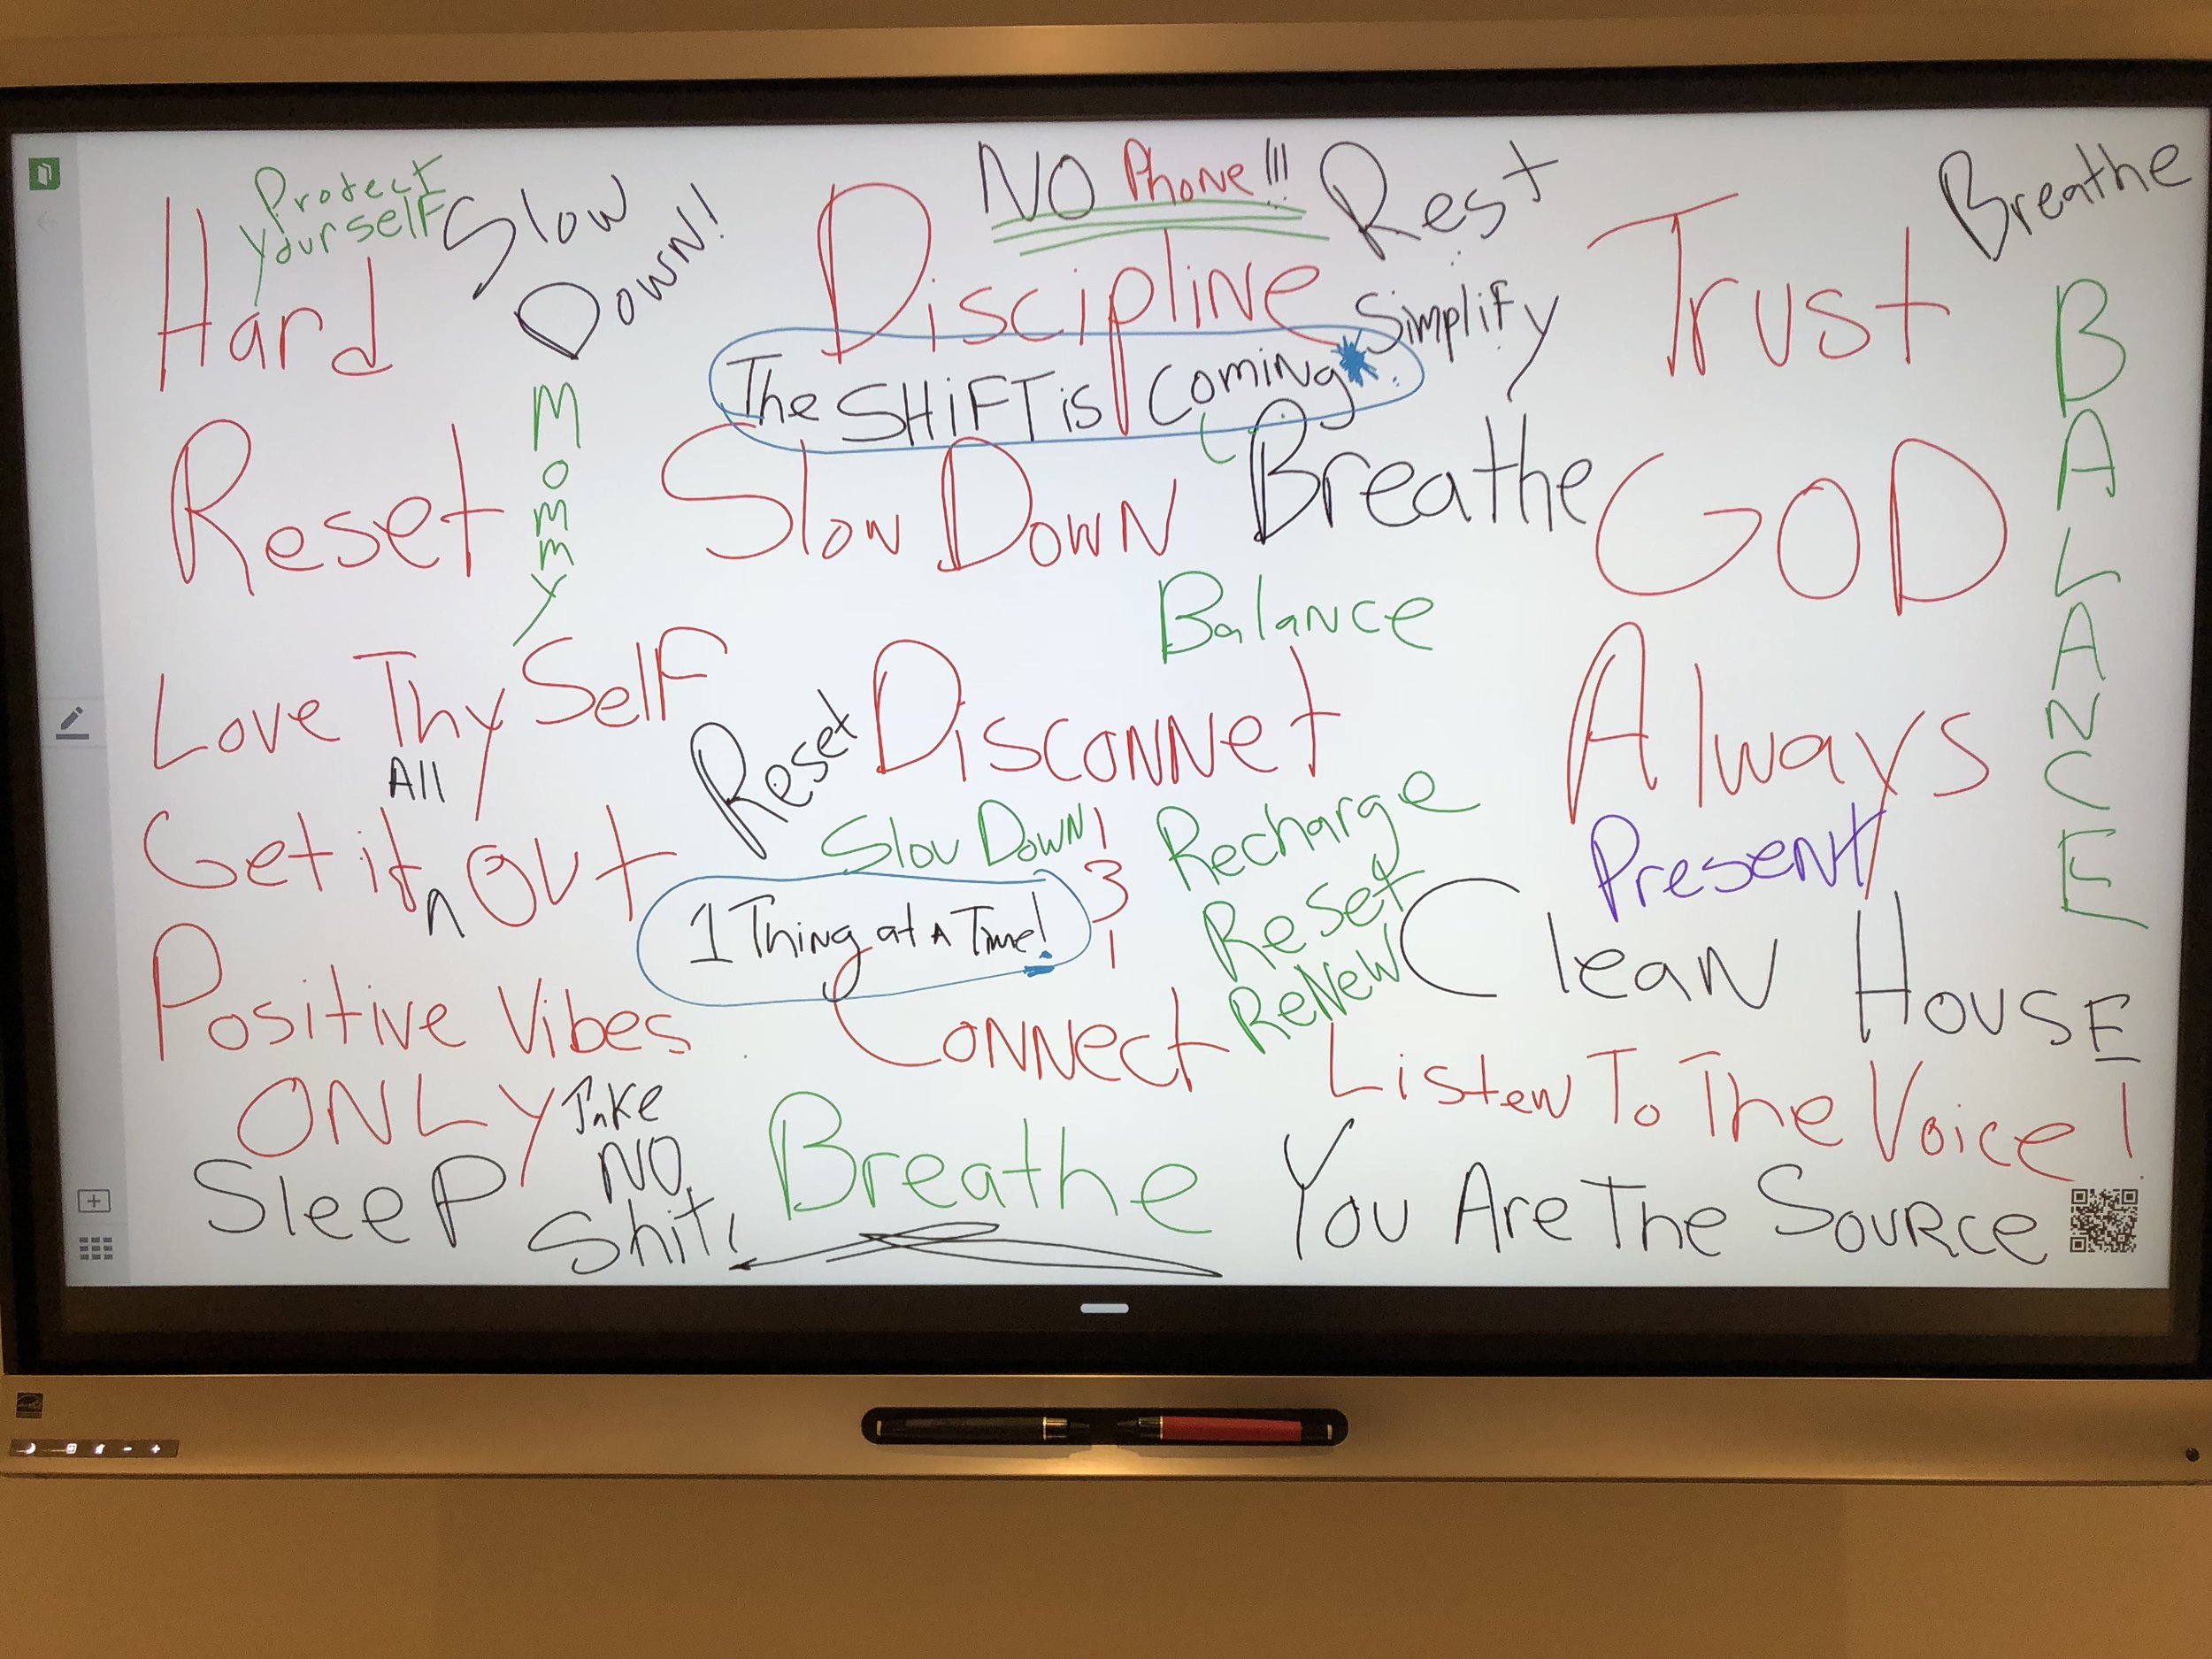 Protect
yourself
Hard
Slow
Down!
NO Phone!!!
Discipline
Rest
Simplify
The SHiFT is Coming*
Trust
Breathe
Reset
Mommy
Slow Down
Breathe
GOD
BALANCE
Balance
Love Thy Self
Reset
Disconnet
Always
All
Get it n Out
Slow Down
1
3
1
Recharge
Reset
ReNew
Present
1 Thing at A Time!
Clean House
Positive Vibes
ONLY
Connect
Listen To The Voice!
Take
NO
Shit!
Sleep
Breathe
You Are The Source